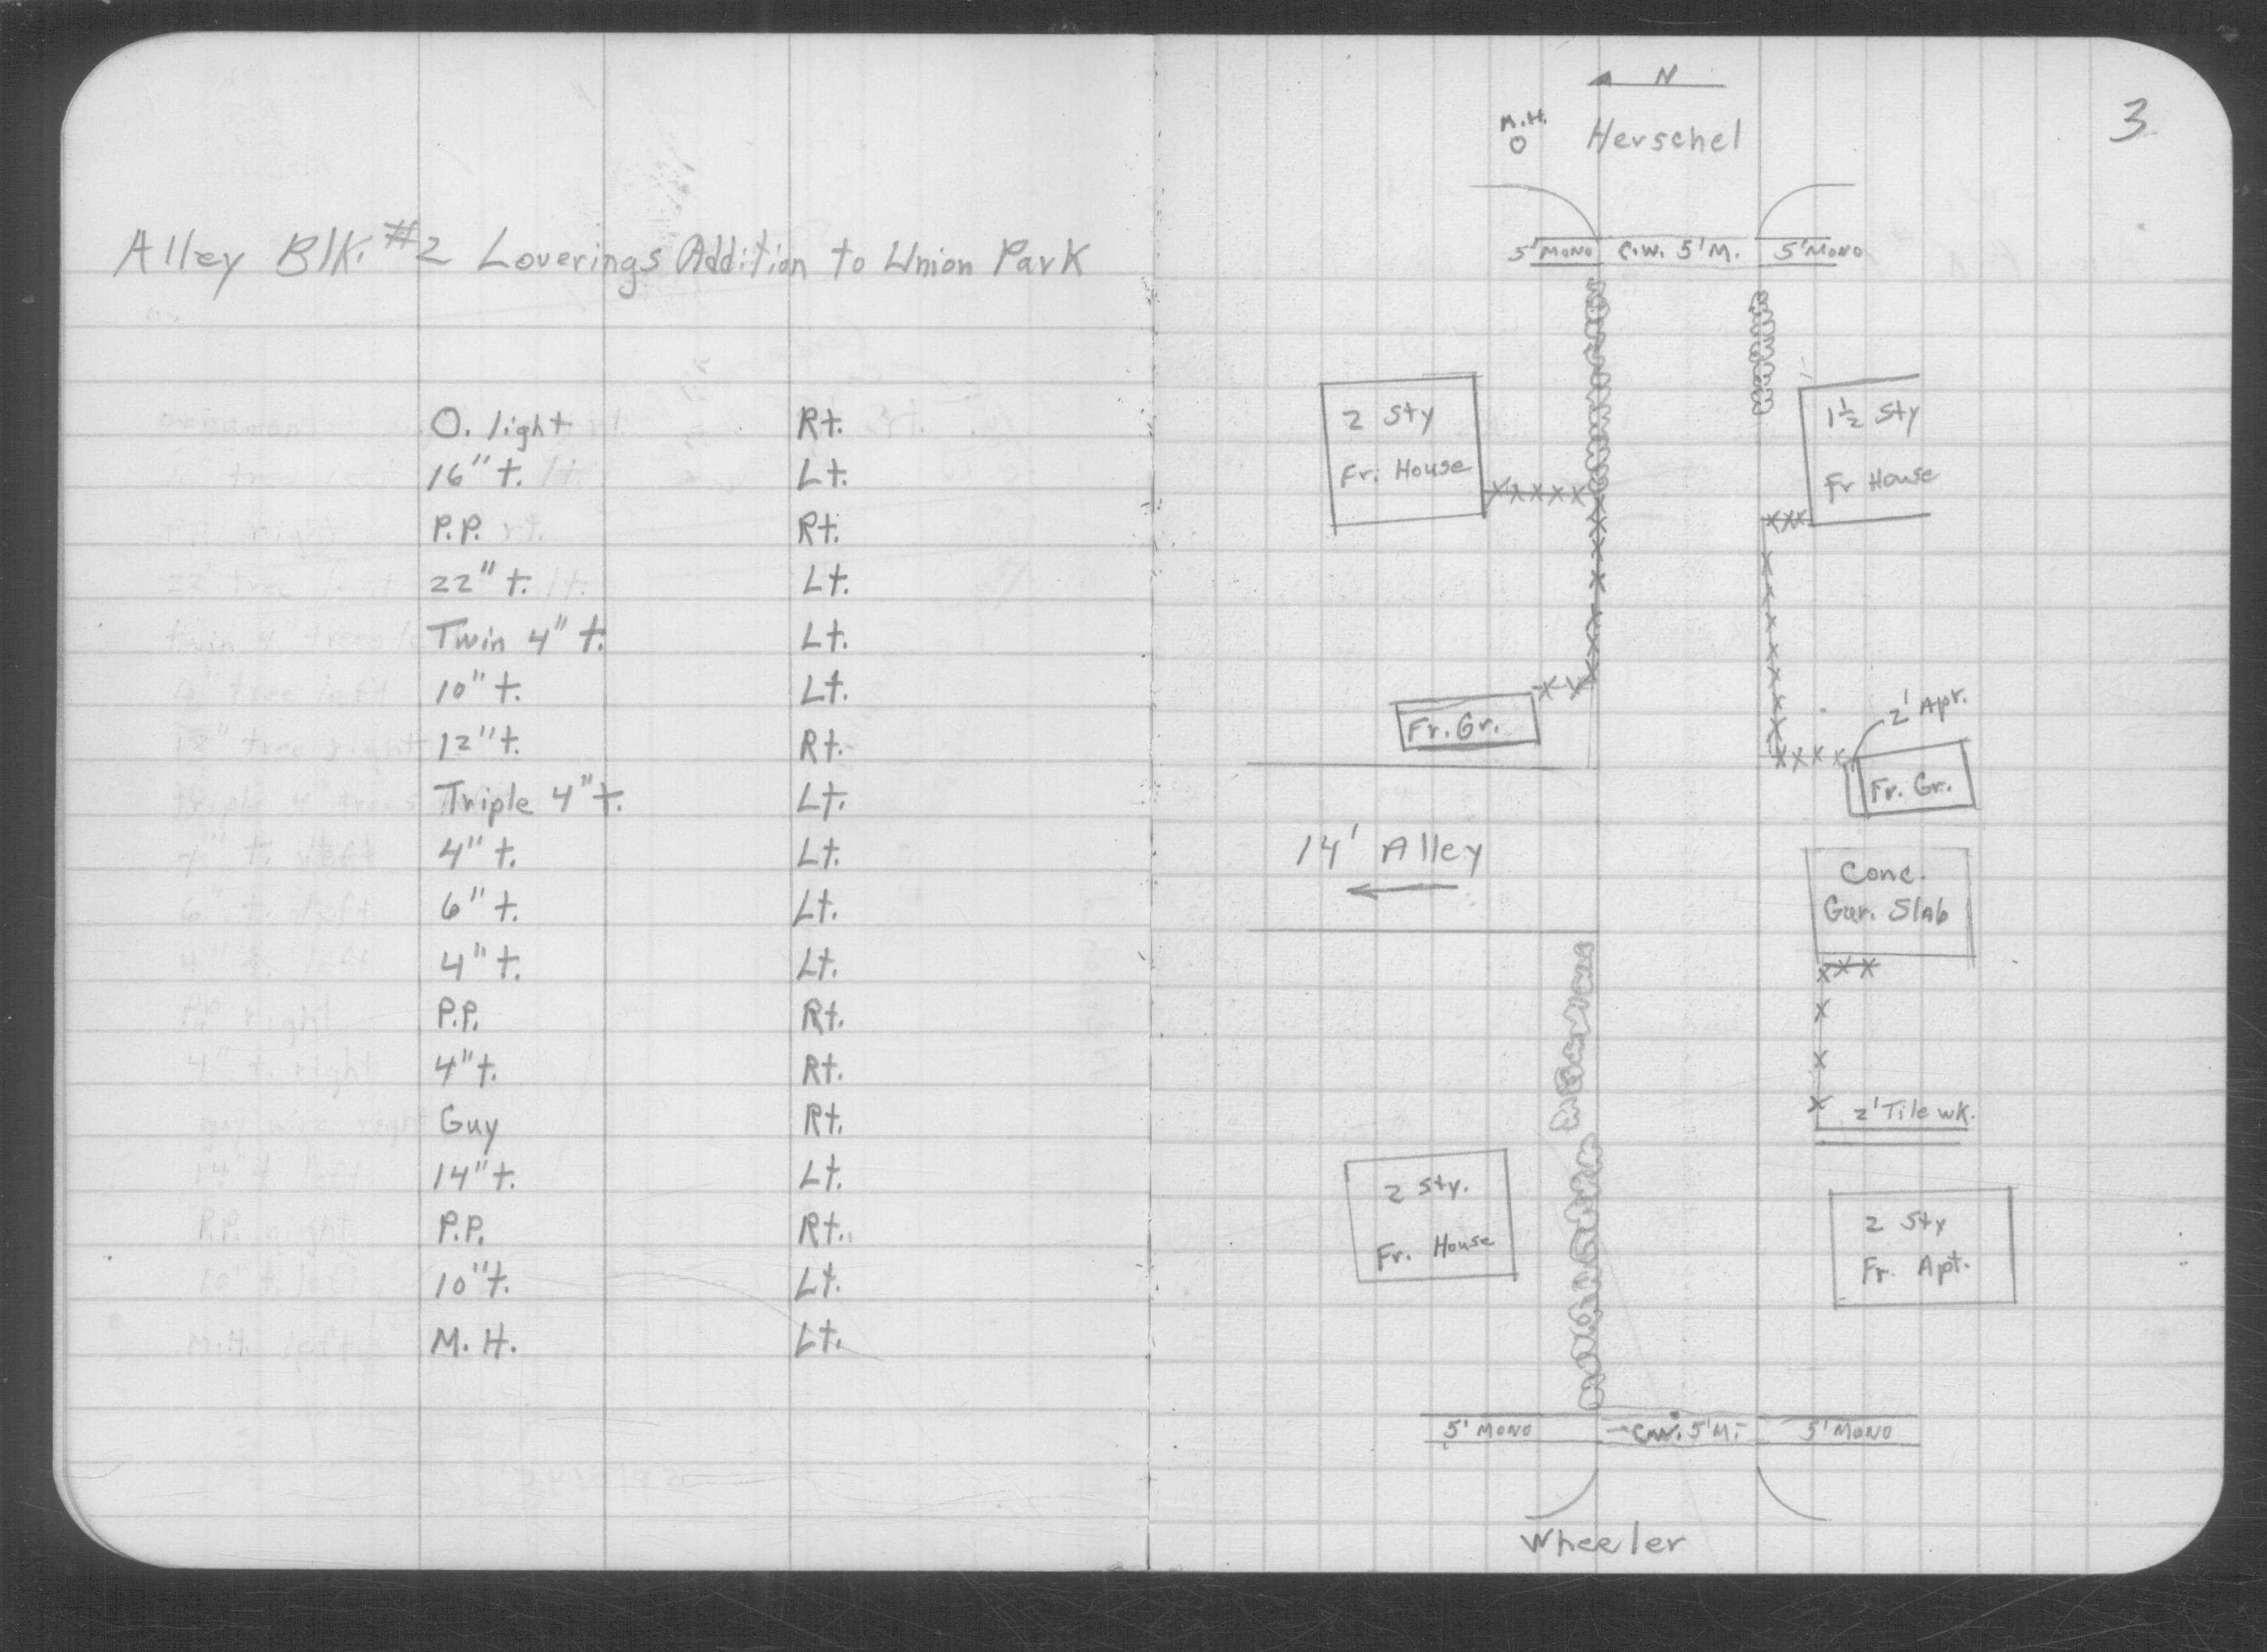 Alley Blk. #2 Loverings Addition to Union Park
O. light Rt.
16" t. Lt.
P.P. Rt.
22" t. Lt.
Twin 4" t. Lt.
10" t. Lt.
12" t. Rt.
Triple 4" t. Lt.
4" t. Lt.
6" t. Lt.
4" t. Lt.
P.P. Rt.
4" t. Rt.
Guy Rt.
14" t. Lt.
P.P. Rt.
10" t. Lt.
M. H. Lt.
3
N
M.H.
Herschel
5' MONO C.W. 5' M. 5' MONO
2 Sty
Fr. House
1½ Sty
Fr House
2' Apr.
Fr. Gr.
Fr. Gr.
14' Alley
Conc.
Gar. Slab
2' Tile wk.
2 Sty.
Fr. House
2 Sty
Fr. Apt.
5' MONO C.W. 5' M. 5' MONO
Wheeler